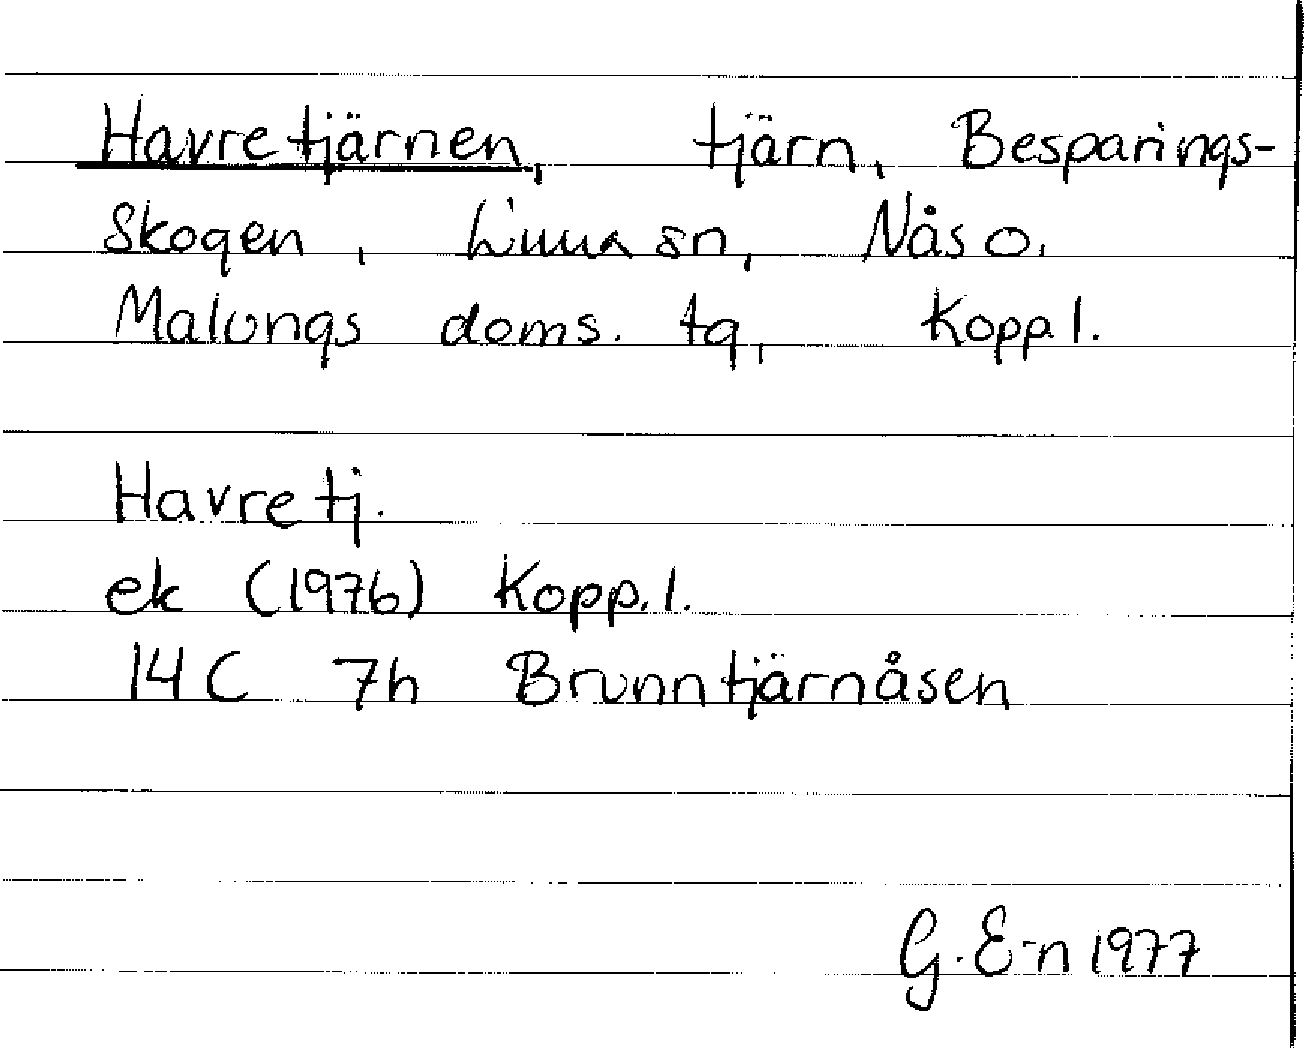 Havretjärnen, tjärn, Besparings-
skogen, Lima sn, Nås o.
Malungs doms. tg, Kopp l.
Havretj.
ek (1976) Kopp. l.
14C 7h Brunntjärnåsen
G. E-n 1977